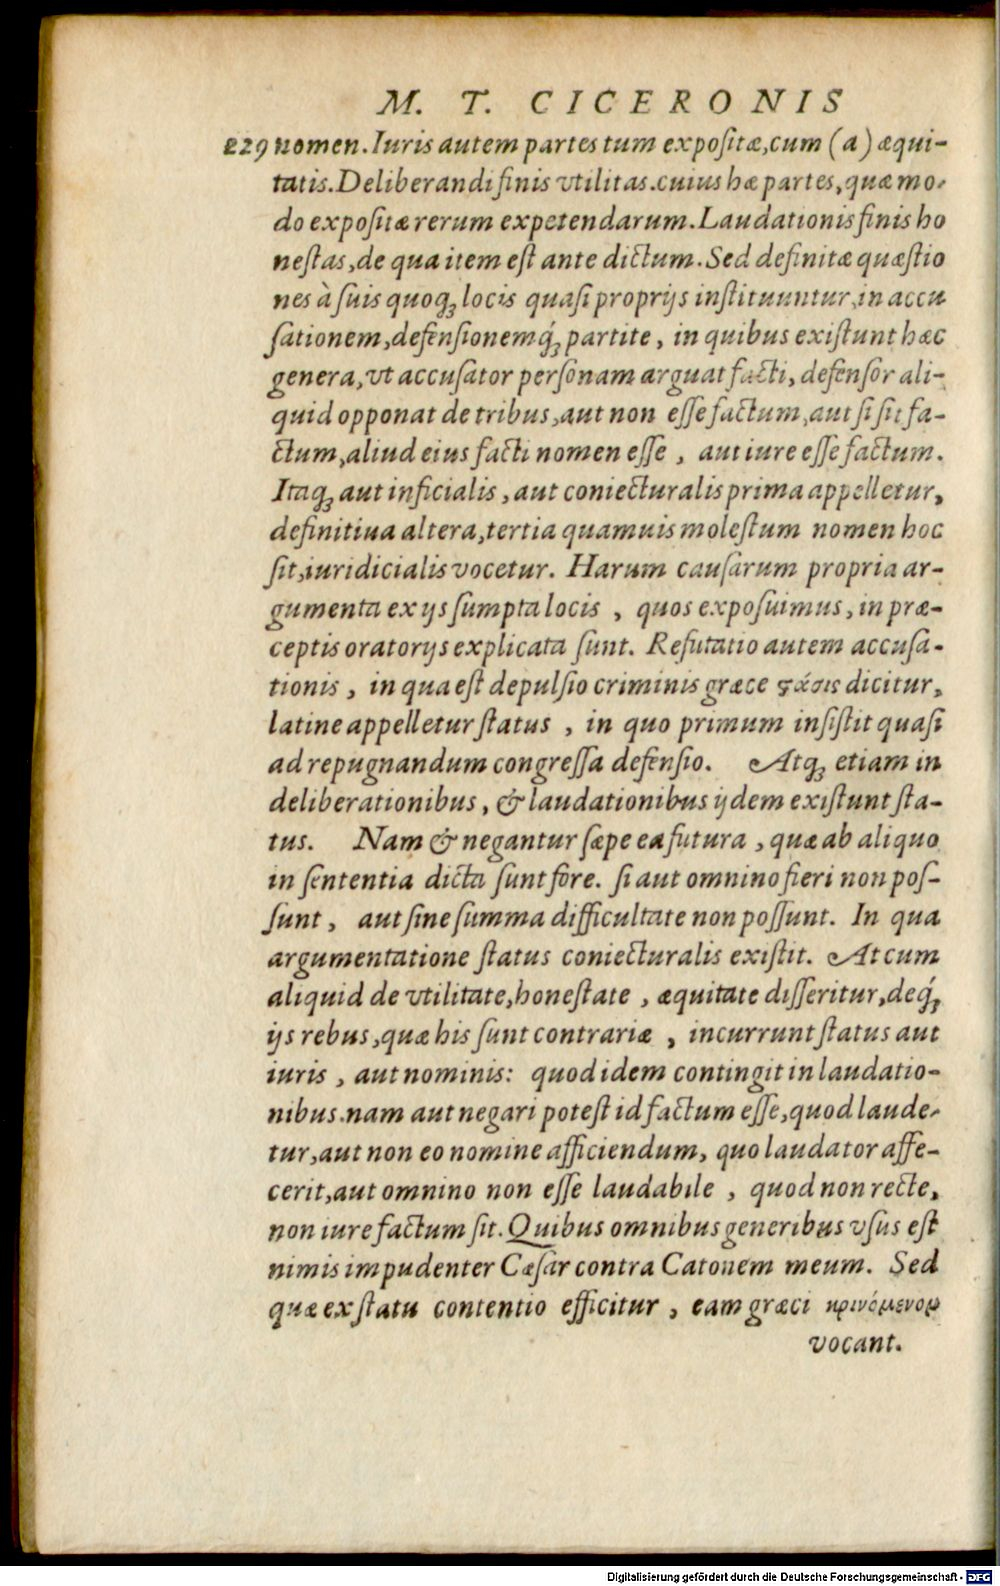 M. T. CICERONIS
229 nomen. Iuris autem partes tum expositæ, cum (a) æqui-
tatis. Deliberandi finis vtilitas. cuius hæ partes, quæ mo-
do expositæ rerum expetendarum. Laudationis finis ho
neſtas, de qua item eſt ante dictum. Sed definitæ quæſtio
nes à ſuis quoqꝫ locis quaſi proprijs inſtituuntur, in accu
ſationem, defenſionemq́ꝫ partite, in quibus exiſtunt hæc
genera, vt accuſator perſonam arguat facti, defenſor ali-
quid opponat de tribus, aut non eſſe factum, aut ſi ſit fa-
ctum, aliud eius facti nomen eſſe, aut iure eſſe factum.
Itaqꝫ aut inficialis, aut coniecturalis prima appelletur,
definitiua altera, tertia quamuis moleſtum nomen hoc
ſit, iuridicialis vocetur. Harum cauſarum propria ar-
gumenta ex ijs ſumpta locis, quos expoſuimus, in præ-
ceptis oratorijs explicata ſunt. Refutatio autem accuſa-
tionis, in qua eſt depulſio criminis græce ϛάσις dicitur,
latine appelletur ſtatus, in quo primum inſiſtit quaſi
ad repugnandum congreſſa defenſio. Atqꝫ etiam in
deliberationibus, & laudationibus ijdem exiſtunt ſta-
tus. Nam & negantur ſæpe ea futura, quæ ab aliquo
in ſententia dicta ſunt fore. ſi aut omnino fieri non poſ-
ſunt, aut ſine ſumma difficultate non poſſunt. In qua
argumentatione ſtatus coniecturalis exiſtit. At cum
aliquid de vtilitate, honeſtate, æquitate diſſeritur, deq́ꝫ
ijs rebus, quæ his ſunt contrariæ, incurrunt ſtatus aut
iuris, aut nominis: quod idem contingit in laudatio-
nibus. nam aut negari poteſt id factum eſſe, quod laude-
tur, aut non eo nomine afficiendum, quo laudator affe-
cerit, aut omnino non eſſe laudabile, quod non recte,
non iure factum ſit. Quibus omnibus generibus vſus eſt
nimis impudenter Cæſar contra Catonem meum. Sed
quæ ex ſtatu contentio efficitur, eam græci κρινόμενομ
vocant.
Digitalisierung gefördert durch die Deutsche Forschungsgemeinschaft - DFG